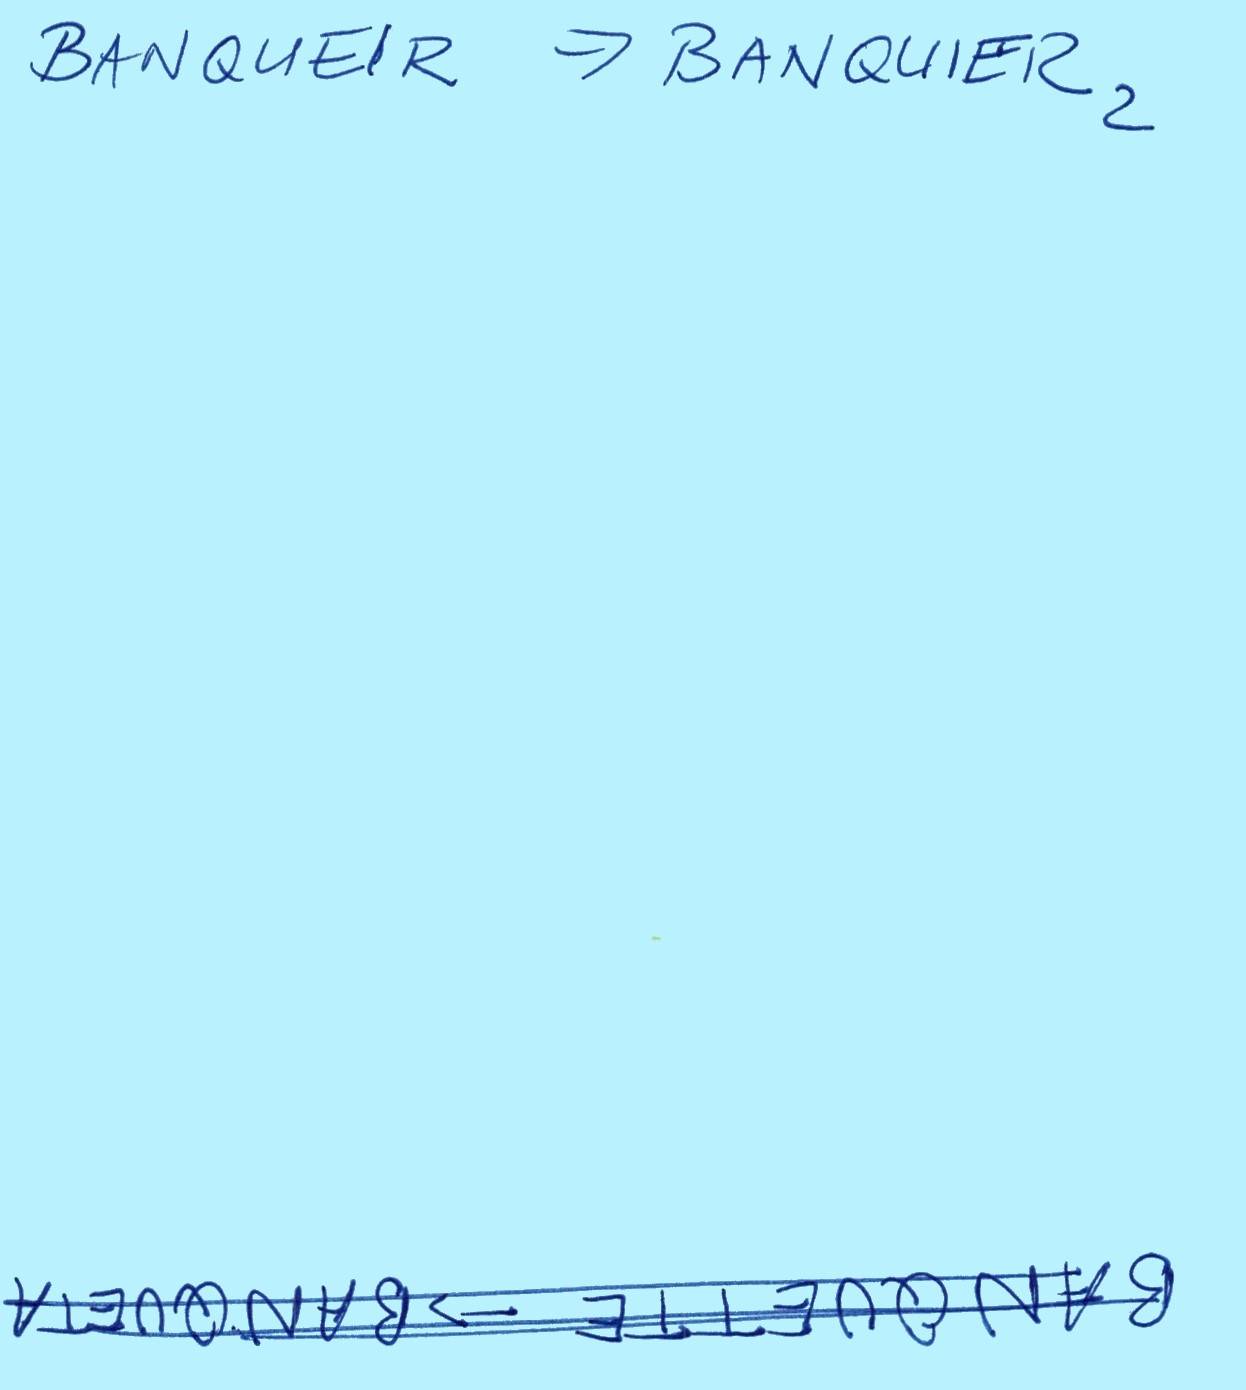 BANQUEIR => BANQUIER 2
BANQUETTE -> BANQUETA